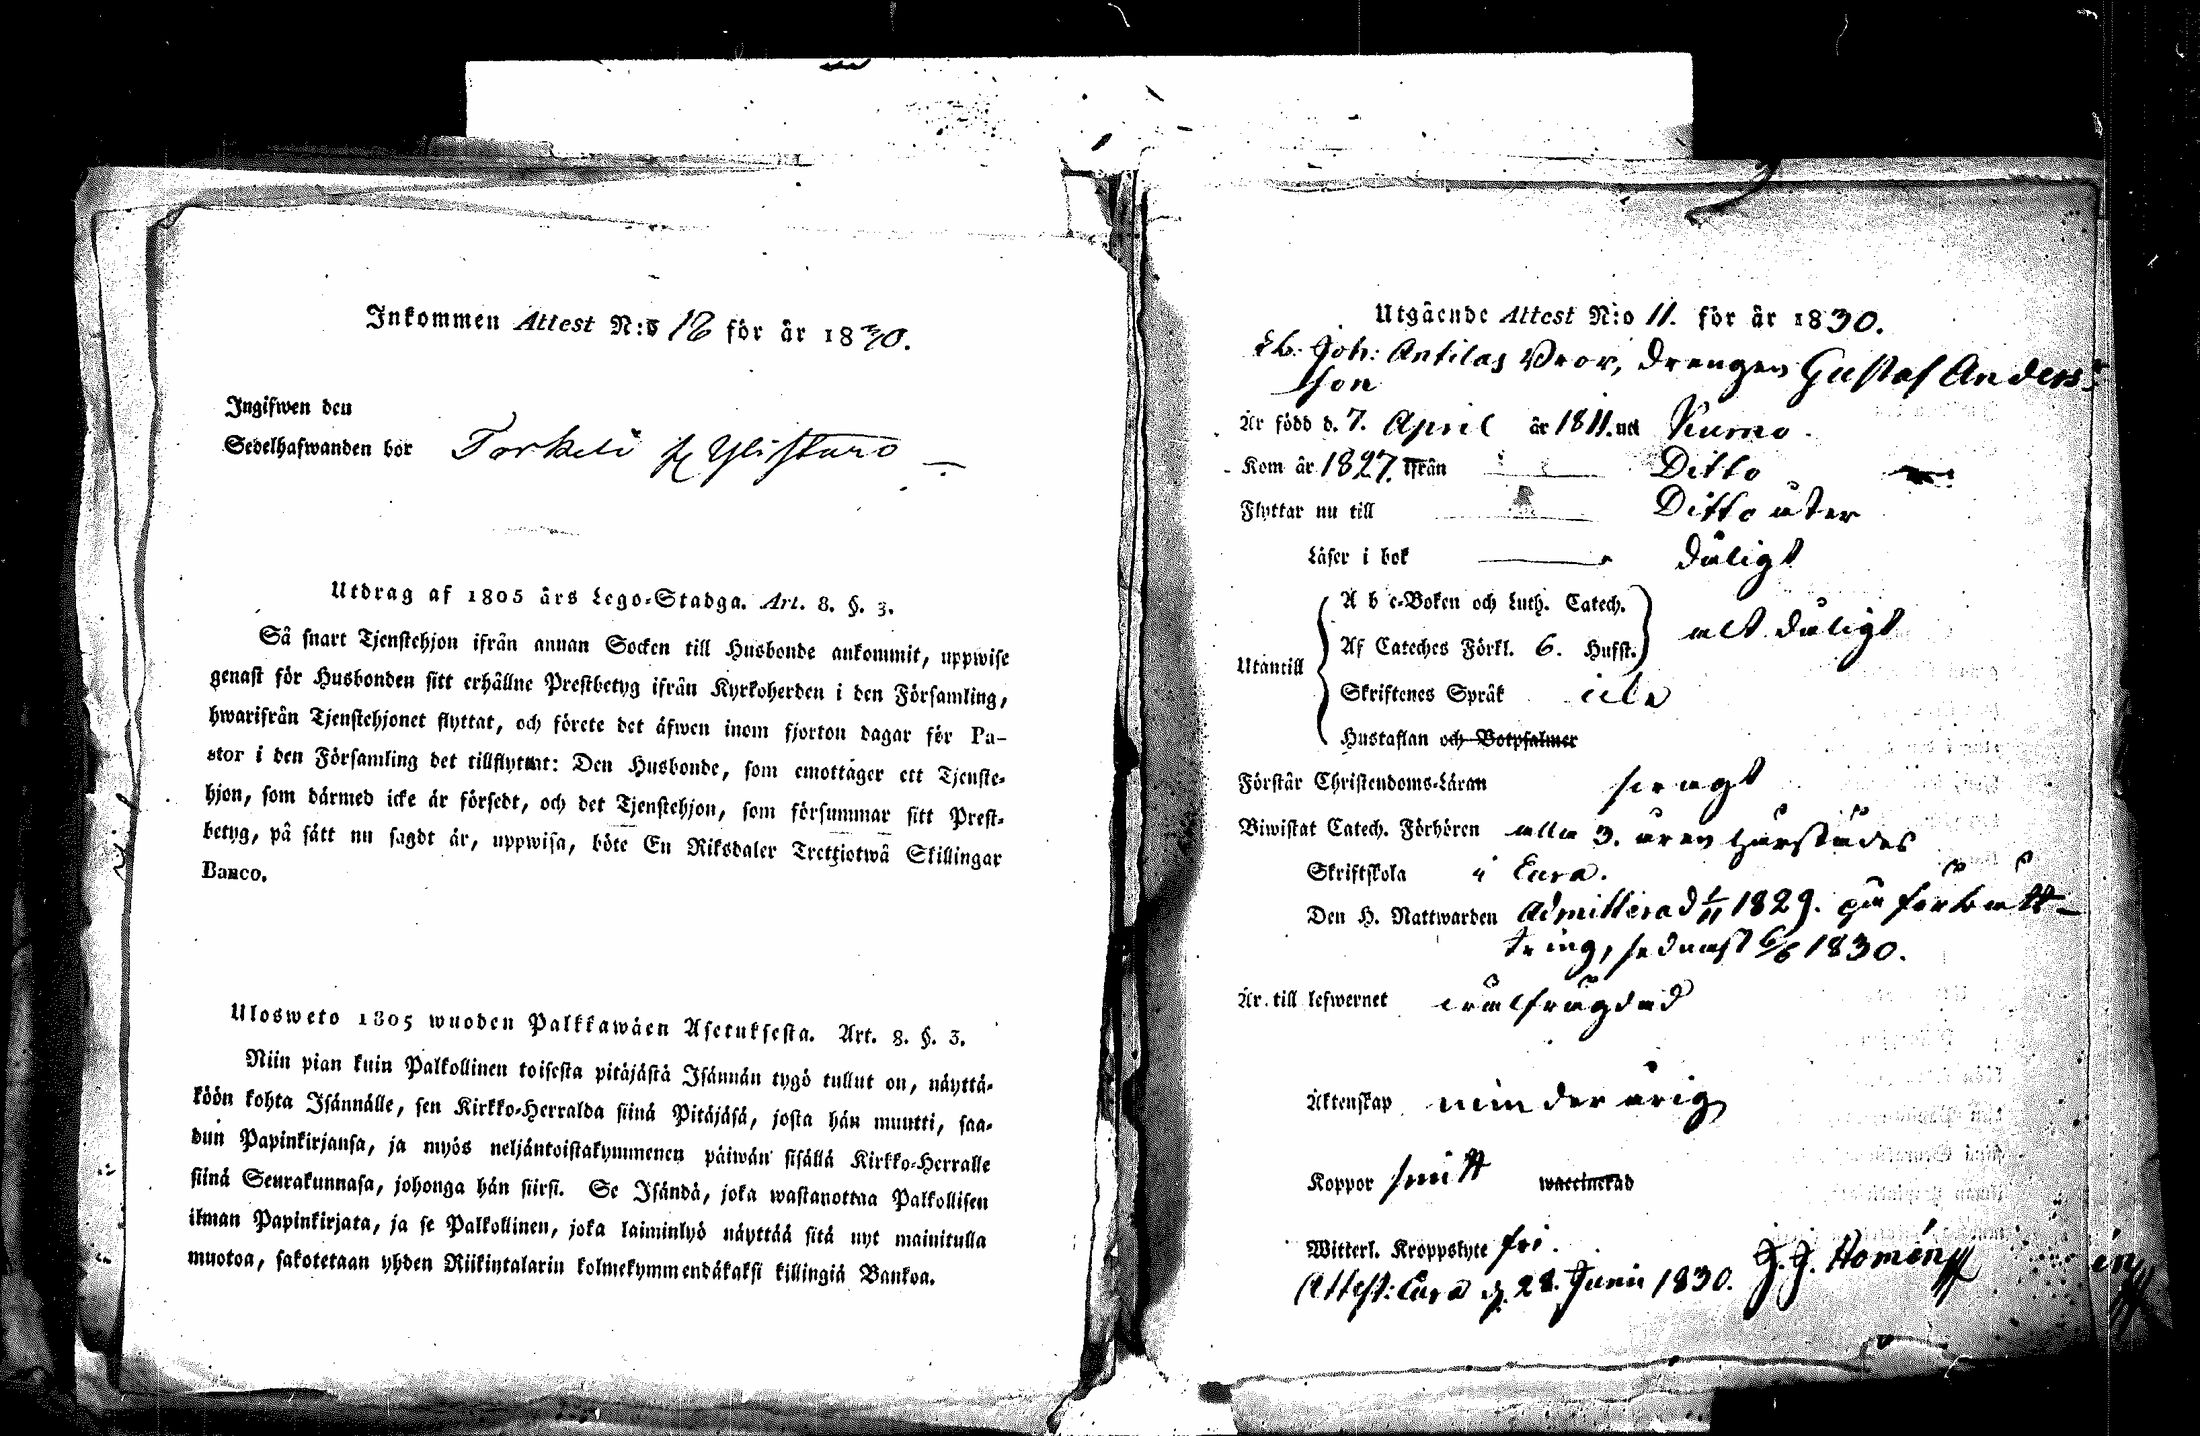 Inkommen Attest N:o 18 för år 1830.
Ingifwen den
Sedelhafwanden bor Torkeli Ylistaro
Utdrag af 1805 års Lego-Stadga. Art. 8. §. 3.
Så snart Tjenstehjon ifrån annan Socken till Husbonde ankommit, uppwise
genast för Husbonden sitt erhållne Prestbetyg ifrån Kyrkoherden i den Församling,
hwarifrån Tjenstehjonet flyttat, och förete det äfwen inom fjorton dagar för Pa-
stor i den Församling det tillflyttat: Den Husbonde, som emottager ett Tjenste-
hjon, som därmed icke är försedt, och det Tjenstehjon, som försummar sitt Prest-
betyg, på sätt nu sagdt är, uppwisa, böte En Riksdaler Trettiotwå Skillingar
Banco.
Ulosweto 1805 wuoden Palkkawäen Asetuksesta. Art. 8. §. 3.
Niin pian kuin Palkollinen toisesta pitäjästä Isännän tygö tullut on, näyttä-
köön kohta Isännälle, sen Kirkko-Herralda siinä Pitäjäsä, josta hän muutti, saa-
dun Papinkirjansa, ja myös neljäntoistakymmenen päiwän sisällä Kirkko-Herralle
siinä Seurakunnasa, johonga hän siirsi. Se Isändä, joka wastanottaa Palkollisen
ilman Papinkirjata, ja se Palkollinen, joka laiminlyö näyttää sitä nyt mainitulla
muotoa, sakotetaan yhden Riikintalarin kolmekymmendäkaksi killingiä Bankoa.
Utgående Attest N:o 11. för år 1830.
Joh: Antilas Bror, Drengen Gustaf Anders-
son
Är född d. 7. April år 1811. uti Kumo.
Kom år 1827. ifrån Ditto
Flyttar nu till Ditto åter
Läser i bok dåligt
A b c-Boken och Luth. Catech.
Af Cateches Förkl. 6. Hufst. alt dåligt
Utantill
Skriftenes Språk icke
Hustaflan och Botpsalmer
Förstår Christendoms-Läran swagt
Biwistat Catech. Förhören alla 3. åren härstädes
Skriftskola i Eura.
Den H. Nattwarden Admitterad 1/11 1829. på förbätt-
tring, sednast 6/6 1830.
Är till lefwernet wälfrägdad
Äktenskap minderårig
Koppor haft waccinerad
Witterl. Kroppslyte fri.
Attest: Eura d. 28. Junii 1830. J. J. Homén